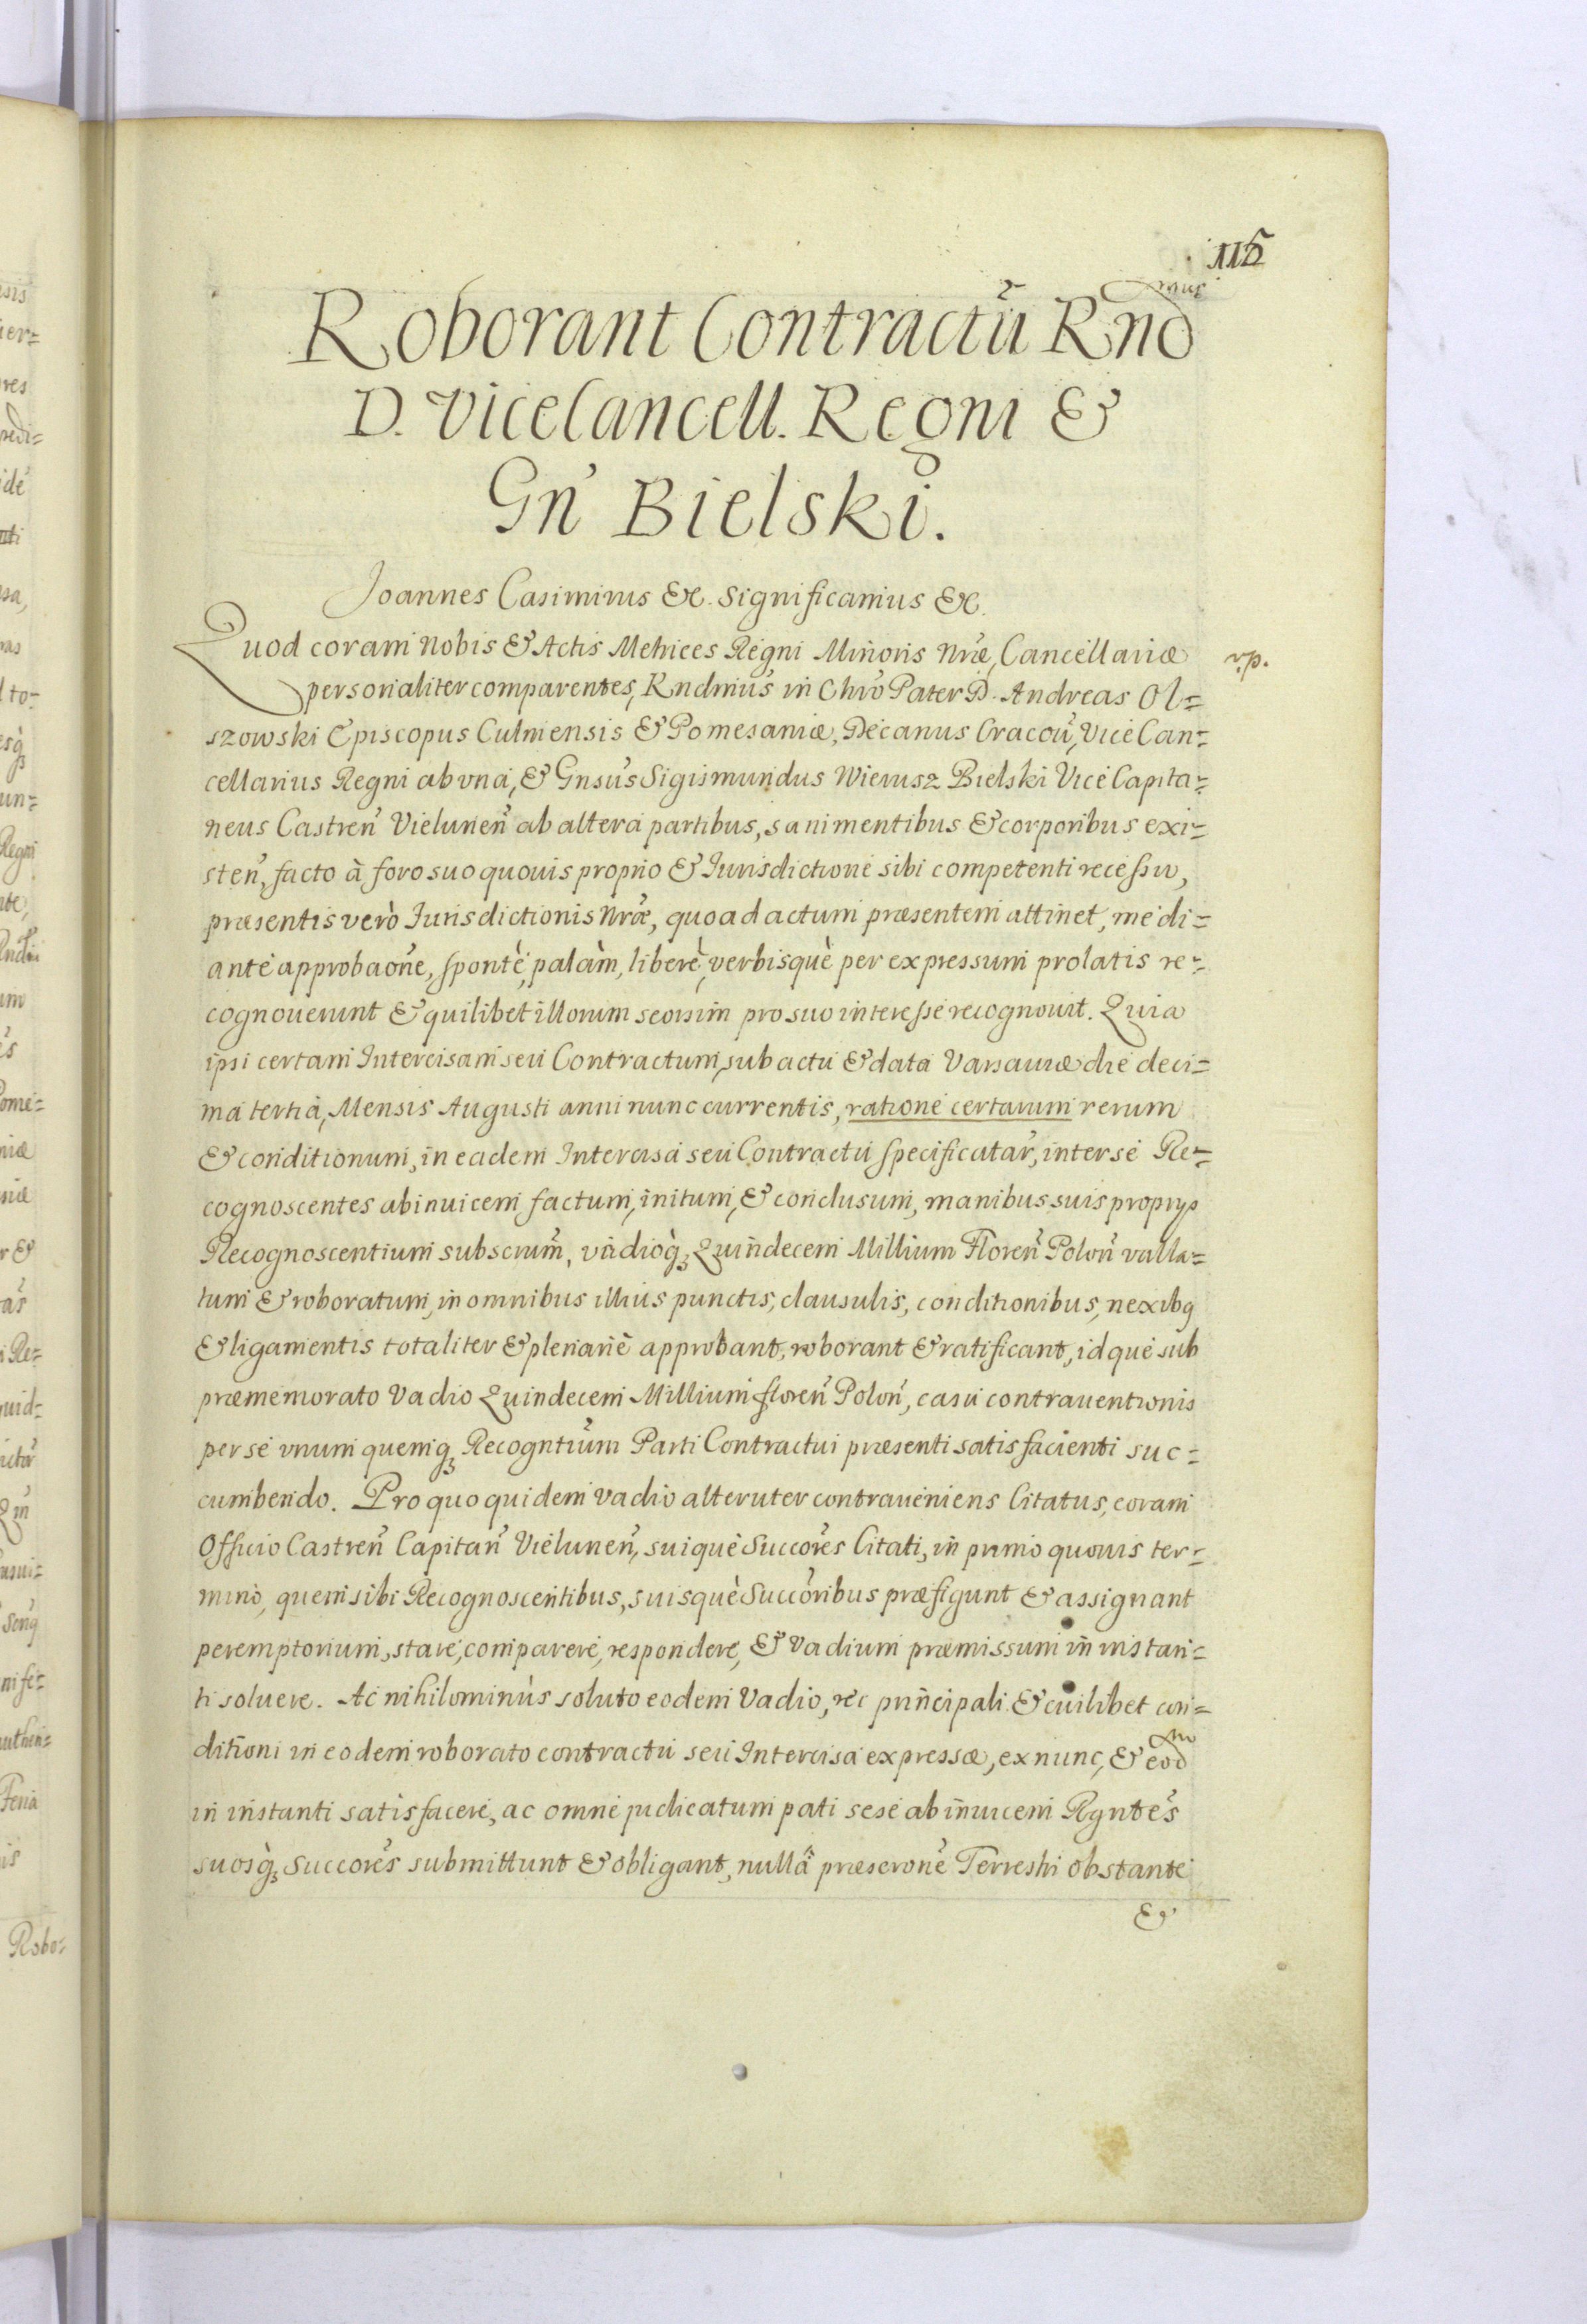 115
Roborant Contractũ Rnd mus
D. ViceCancell. Regni &
Gn̄ Bielski.
Joannes Casimirus &c. Significamus &c.
Quod coram Nobis & Actis Metrices Regni Minoris Nr̃æ, Cancellariæ
rp.
personaliter comparentes, Rndmus in Chrō Pater D. Andreas Ol=
szowski Episcopus Culmensis & Pomesaniæ, Decanus Cracoũ, Vice Can=
cellarius Regni ab vna, & Gnsus Sigismundus Wierusz Bielski Vice Capita=
neus Castreñ Vieluneñ ab altera partibus, sani mentibus & corporibus exi=
steñ, facto à foro suo quouis proprio & Iurisdictione sibi competenti recessu,
præsentis verò Iurisdictionis Nr̃æ, quoad actum præsentem attinet, medi=
ante approbaõne, spontè, palàm, liberè, verbisquè per expressum prolatis re=
cognouerunt & quilibet illorum seorsim pro suo interesse recognouit. Quia
ipsi certam Intercisam seu Contractum, sub actu & data Varsauiæ die deci=
ma tertia, Mensis Augusti anni nunc currentis, ratione certarum rerum
& conditionum, in eadem Intercisa seu Contractu specificatar̃, inter se Re=
cognoscentes abinuicem factum, initum, & conclusum, manibus suis proprys
Recognoscentium subscrium̃, vadioq̀ȝ Quindecem Millium Floreñ Poloñ valla=
tum & roboratum, in omnibus illius punctis, clausulis, conditionibus, nexibq
& ligamentis totaliter & plenariè approbant, roborant & ratificant, idque sub
præmemorato Vadio Quindecem Millium floreñ Poloñ, casu contrauentionis
per se vnum quemqȝ Recogntium̃ Parti Contractui præsenti satisfacienti suc=
cumbendo. Pro quo quidem vadio alteruter contraueniens Citatus, coram
Officio Castreñ Capitañ Vieluneñ, suiquè Succor̃es Citati, in primo quouis ter=
mino, quem sibi Recognoscentibus, suisquè Succor̃ibus præfigunt & assignant
peremptorium, stare, comparere, respondere, & Vadium præmissum in instan=
ti soluere. Ac nihilominùs soluto eodem Vadio, rei principali & cuilibet con=
ditioni in eodem roborato contractu seu Intercisa expressæ, ex nunc, & eod m
in instanti satisfacere, ac omne judicatum pati sese ab inuicem Rgntes̃
suosq̀ȝ Succor̃es submittunt & obligant, nullâ præscrione̾ Terrestri obstante
&